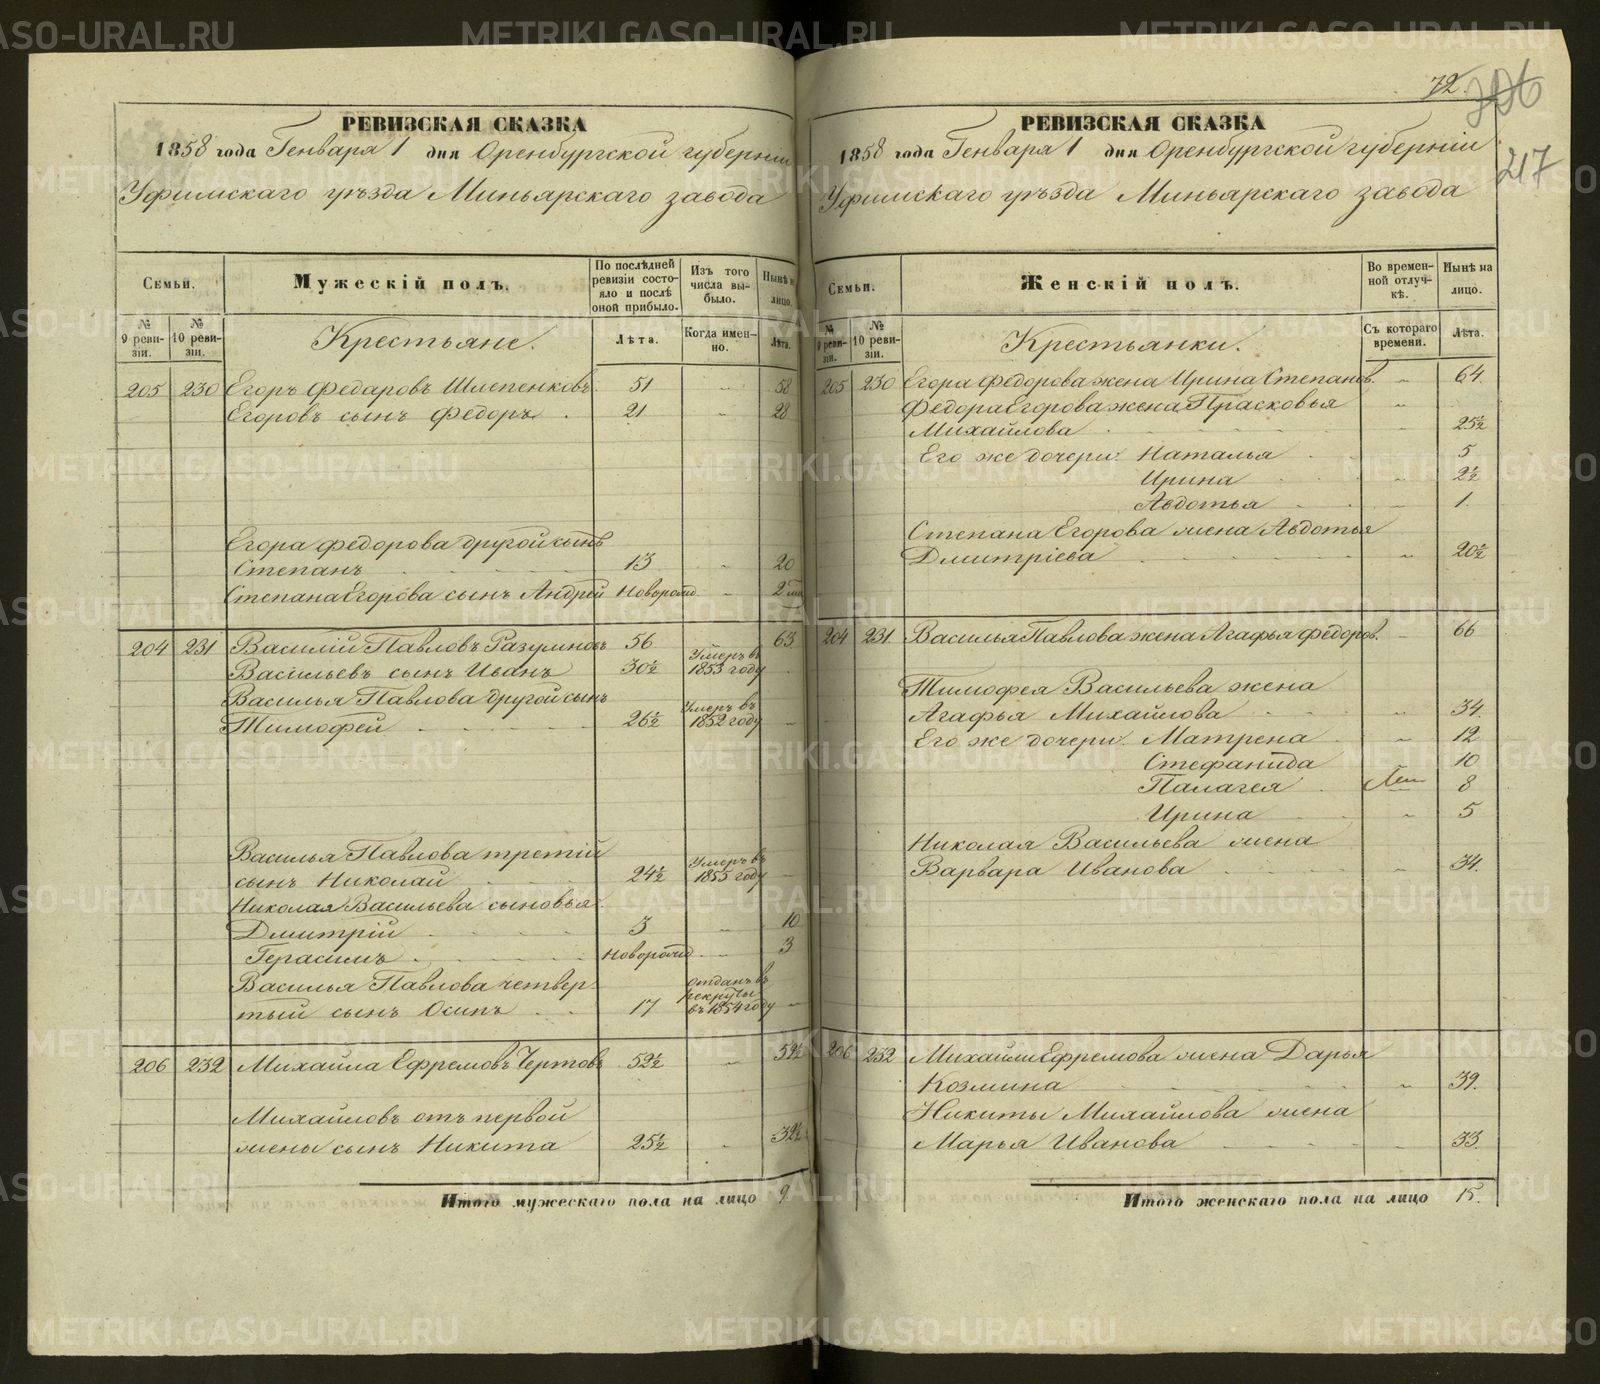 72.
217
РЕВИЗСКАЯ СКАЗКА
1858 года Генваря 1 дня Оренбургской губерніи
Уфимскаго уѣзда Миньярскаго завода
Семьи.
Мужескій полъ.
По послѣдней ревизіи состояло и послѣ оной прибыло.
Изъ того числа выбыло.
Нынѣ на лицо.
№ 9 ревизіи.
№ 10 ревизіи.
Крестьяне.
Лѣта.
Когда именно.
Лѣта.
205 230 Егоръ Федаровъ Шлепенковъ 51 " 58
Егоровъ сынъ Федоръ 21 " 28
Егора Федорова другой сынъ
Степанъ 13 " 20
Степана Егорова сынъ АндрейНоворожд. "
204 231 Василій Павловъ Разумновъ 56 63
Васильевъ сынъ Иванъ 30½ Умеръ въ 1853 году
Василья Павлова другой сынъ
Тимофей 26½ Умеръ въ 1852 году "
Василья Павлова третій
сынъ Николай 24½ Умеръ въ 1855 году
Николая Васильева сыновья
Дмитрій 3 " 10
Герасимъ Новорожд " 3
Василья Павлова четвер
тый сынъ Осипъ 17 отданъ въ рекруты въ 1854 году "
206 232 Михайла Ефремовъ Чертовъ 52½ " 59½
Михайловъ отъ первой
жены сынъ Никита 25½ " 32½
Итого мужескаго пола на лицо 9.
РЕВИЗСКАЯ СКАЗКА
1858 года Генваря 1 дня Оренбургской губерніи
Уфимскаго уѣзда Миньярскаго завода
Семьи.
Женскій полъ.
Во временной отлучкѣ.
Нынѣ на лицо.
№ 9 ревизіи.
№ 10 ревизіи.
Крестьянки.
Съ котораго времени.
Лѣта.
205 230 Егора Федорова жена Ирина Степанов. " 64
Федора Егорова жена Прасковья "
Михайлова " 25½
Его же дочери Наталья 5
Ирина " 2½
Авдотья 1.
Степана Егорова жена Авдотья
Дмитріева " 20½
204 231 Василья Павлова жена Агафья Федоров. 66
Тимофея Васильева жена
Агафья Михайлова " 34.
Его же дочери Матрена " 12
Стефанида 10
Палагея 8
Ирина " 5
Николая Васильева жена
Варвара Иванова " 34.
206 232 Михайлы Ефремова жена Дарья
Козмина " 39.
Никиты Михайлова жена
Марья Иванова " 33
Итого женскаго пола на лицо 15.
METRIKI.GASO-URAL.RU